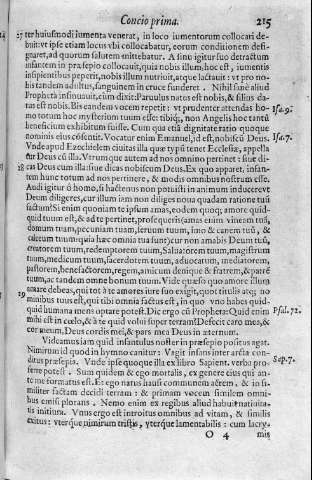 Concio prima.
215
27 ter huiusmodi iumenta venerat, in loco iumentorum collocari de-
buit: vt ipse etiam locus vbi collocabatur, eorum conditionem desi-
gnaret, ad quorum salutem mittebatur. A sinu igitur suo detractum
infantem in præsepio collocauit, quia nobis illum, hoc est, iumentis
insipientibus peperit, nobis illum nutriuit, atque lactauit: vt pro no-
bis tandem adultus, sanguinem in cruce funderet. Nihil sanè aliud
Propheta insinuauit, cùm dixit: Paruulus natus est nobis, & filius da-
tus est nobis. Bis eandem vocem repetit: vt prudenter attendas bo-
no totum hoc mysterium tuum esse: tibíq;, non Angelis hoc tantū
beneficium exhibitum fuisse. Cum qua etiā dignitate ratio quoque
nominis eius cōsentit. Vocatur enim Emanuel, id est, nobiscū Deus.
Vnde apud Ezechielem ciuitas illa quæ typū tenet Ecclesiæ, appella
tur Deus cū illa. Vtrumque autem ad nos omnino pertinet: siue di-
28 cas Deus cum illa: siue dicas nobiscum Deus. Ex quo apparet, infan-
tem hunc totum ad nos pertinere, & modis omnibus nostrum esse.
Audi igitur ô homo, si hactenus non potuisti in animum inducere vt
Deum diligeres, cur illum iam non diligas noua quadam ratione tuū
factum? Si enim quoniam te ipsum amas, eodem quoq; amore quid-
quid tuum est, & ad te pertinet, prosequeris (amas enim vineam tuā,
domum tuam, pecuniam tuam, seruum tuum, imo & canem tuū, &
calceum tuum quia hæc omnia tua sunt) cur non amabis Deum tuū,
creatorem tuum, redemptorem tuum, Saluatorem tuum, magistrum
tuum, medicum tuum, sacerdotem tuum, aduocatum, mediatorem,
pastorem, benefactorem, regem, amicum denique & fratrem, & patrē
tuum, ac tandem omne bonum tuum. Vide quæso quo amore illum
amare debeas, qui tot à te amores iure suo exigit, quot titulis atq; no
29 minibus tuus est, qui tibi omnia factus est, in quo vno habes quid-
quid humana mens optare potest. Dic ergo cū Propheta: Quid enim
mihi est in cœlo, & à te quid volui super terram? Defecit caro mea, &
cor meum, Deus cordis mei, & pars mea Deus in æternum.
Videamus iam quid infantulus noster in præsepio positus agat.
Nimirum id quod in hymno canitur: Vagit infans inter arcta con-
ditus præsepia. Vnde ipse quoque illa ex libro Sapient. verba pro-
ferre potest. Sum quidem & ego mortalis, ex genere eius qui an-
te me formatus est. Et ego natus hausi communem aërem, & in si-
militer factam decidi terram: & primam vocem similem omni-
bus emisi plorans. Nemo enim ex regibus aliud habuit natiuita-
tis initium. Vnus ergo est introitus omnibus ad vitam, & similis
exitus: vterque nimirum tristis, vterque lamentabilis: cum lacry-
O 4
mis
Isa. 9.
Isa. 7.
Psal. 72.
Sap. 7.